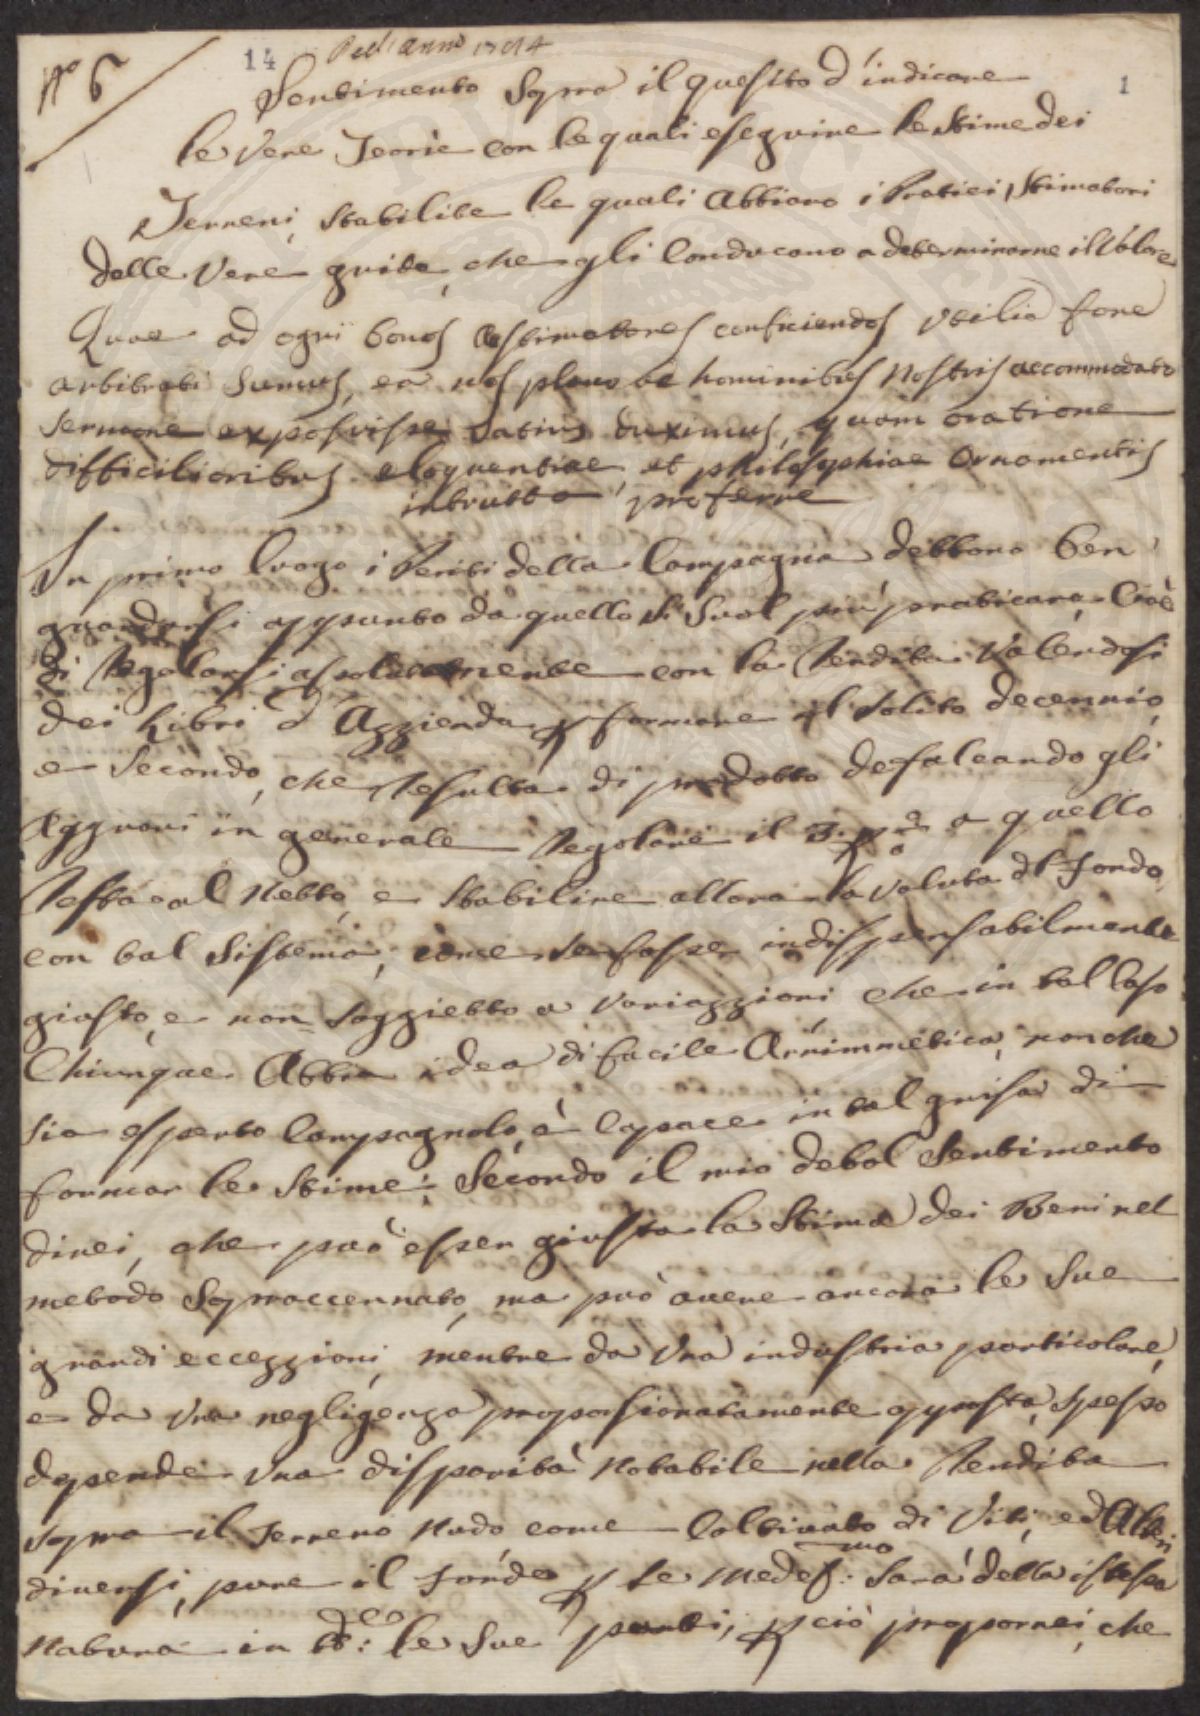 N.o 6
14
1
Sentimento Sopra il quesito d'indicare
le Vere Teorie con le quali eseguire le Stime dei
Terreni, Stabilite le quali Abbiano i Pratici Stimatori
delle Vere guide, che gli Conducono a determinarne il Valore
Quae ad ogni bonos Aestimatores conficiendos Utilia fore
arbitrati Sumus, ea nos plano et hominibus Nostris accommodato
Sermone exposuisse Satius duximus, quam oratione
difficilioribus eloquentiae, et philosophiae Ornamentis
instructa proferre
In primo luogo i Periti della Campagna debbono ben
guardarsi appunto da quello Si Suol più praticare, Cioè
di Regolarsi assolutamente con la Rendita Valendosi
dei Libri d'Azzienda p formare il Solito decennio,
e Secondo, che Resulta di prodotto defalcando gli
Aggravi in generale Regolare il 3. p a quello
Resta al Netto, e Stabilire allora la Valuta dl Fondo,
con tal Sistema, come Se fosse indispensabilmente
giusto, e non Soggietto a Variazzioni, che in tal Caso
Chiunque Abbia idea di facile Arrimmetica, non che
Sia esperto Campagnolo, è Capace in tal guisa di
formar le Stime: Secondo il mio debol Sentimento
direi, che può esser giusta la Stima dei Beni nel
metodo Sopraccennato, ma può avere ancora le Sue
grandi eccezzioni, mentre da Una industria particolare,
e da Una negligenza proporsionatamente opposta, Spesso
depende Una disparità Notabile nella Rendita
Sopra il Terreno Nudo come Coltivato di Viti, ed Alberi
diversi, pure il Fondo p Se Medes:mo Sarà della istessa
Natura in tt:e le Sue parti, p ciò proporrei, che